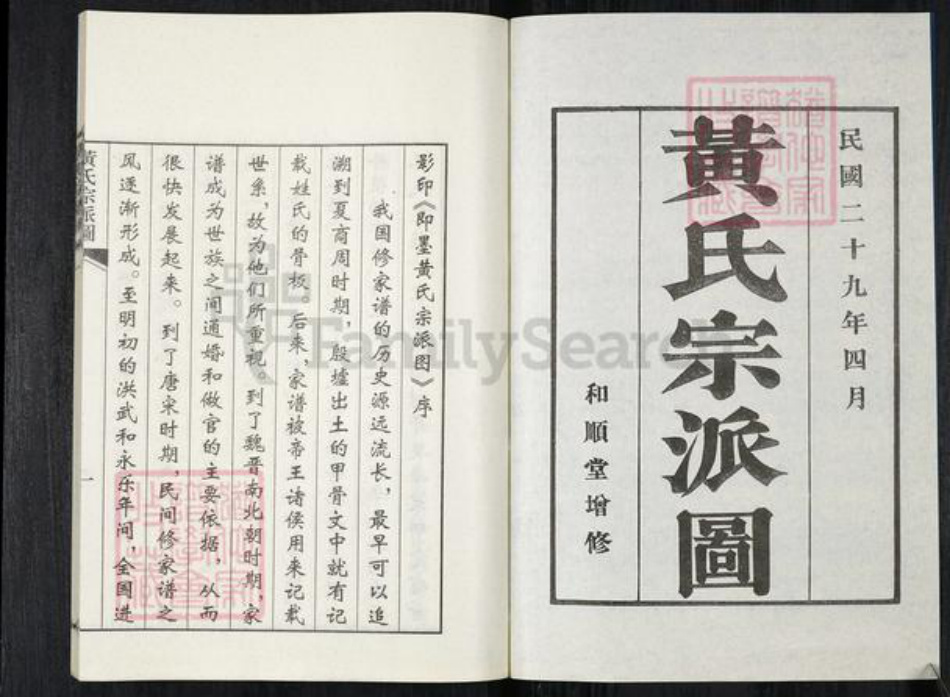 民國二十九年四月
黃氏宗派圖
和順堂增修
影印《即墨黄氏宗派图》序
我国修家谱的历史源远流长，最早可以追
溯到夏商周时期，殷墟出土的甲骨文中就有记
载姓氏的骨板。后来，家谱被帝王诸侯用来记载
世系，故为他们所重视。到了魏晋南北朝时期，家
谱成为世族之间通婚和做官的主要依据，从而
很快发展起来。到了唐宋时期，民间修家谱之
风逐渐形成。至明初的洪武和永乐年间，全国进
黄氏宗派圖
一
FamilySearch